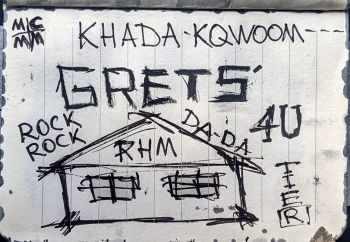 M C
M M
KHADA-KQWOOM---
GRETS'
ROCK
ROCK
DA-DA
4U
RHM
TIER